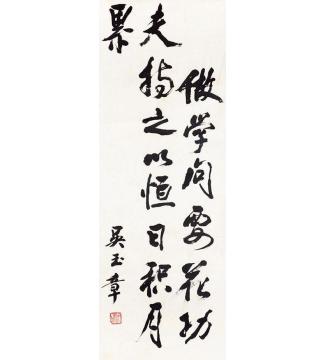 做学问要花功
夫持之以恒日积月
累
吴玉章